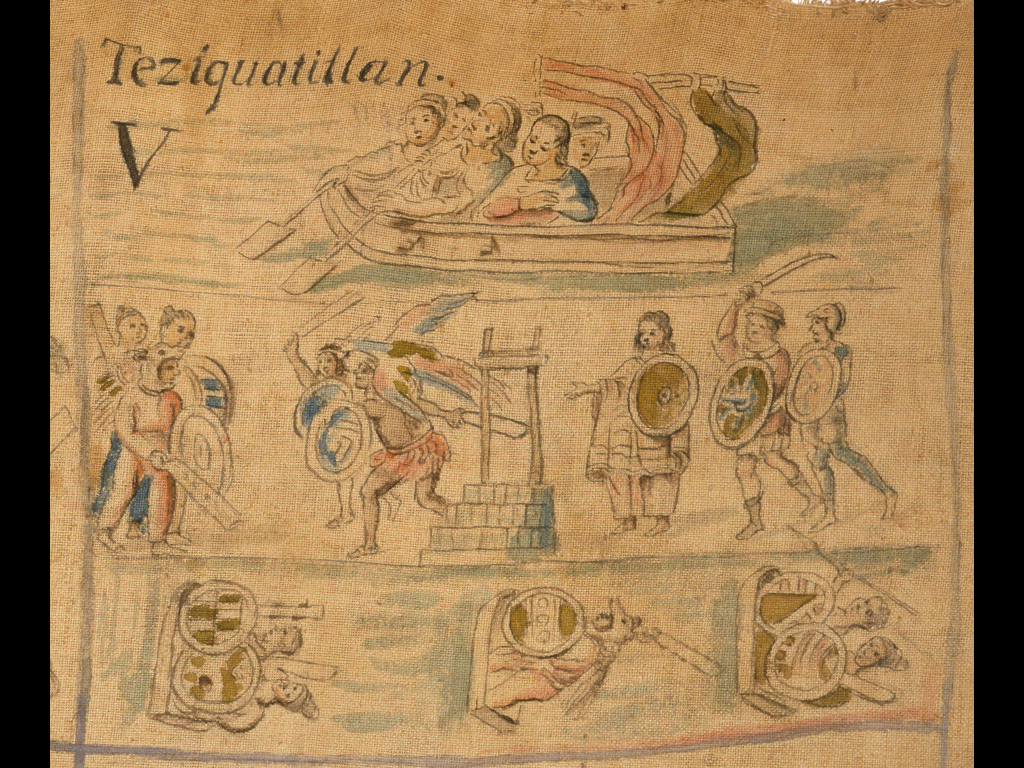 Teziquatillan.
V